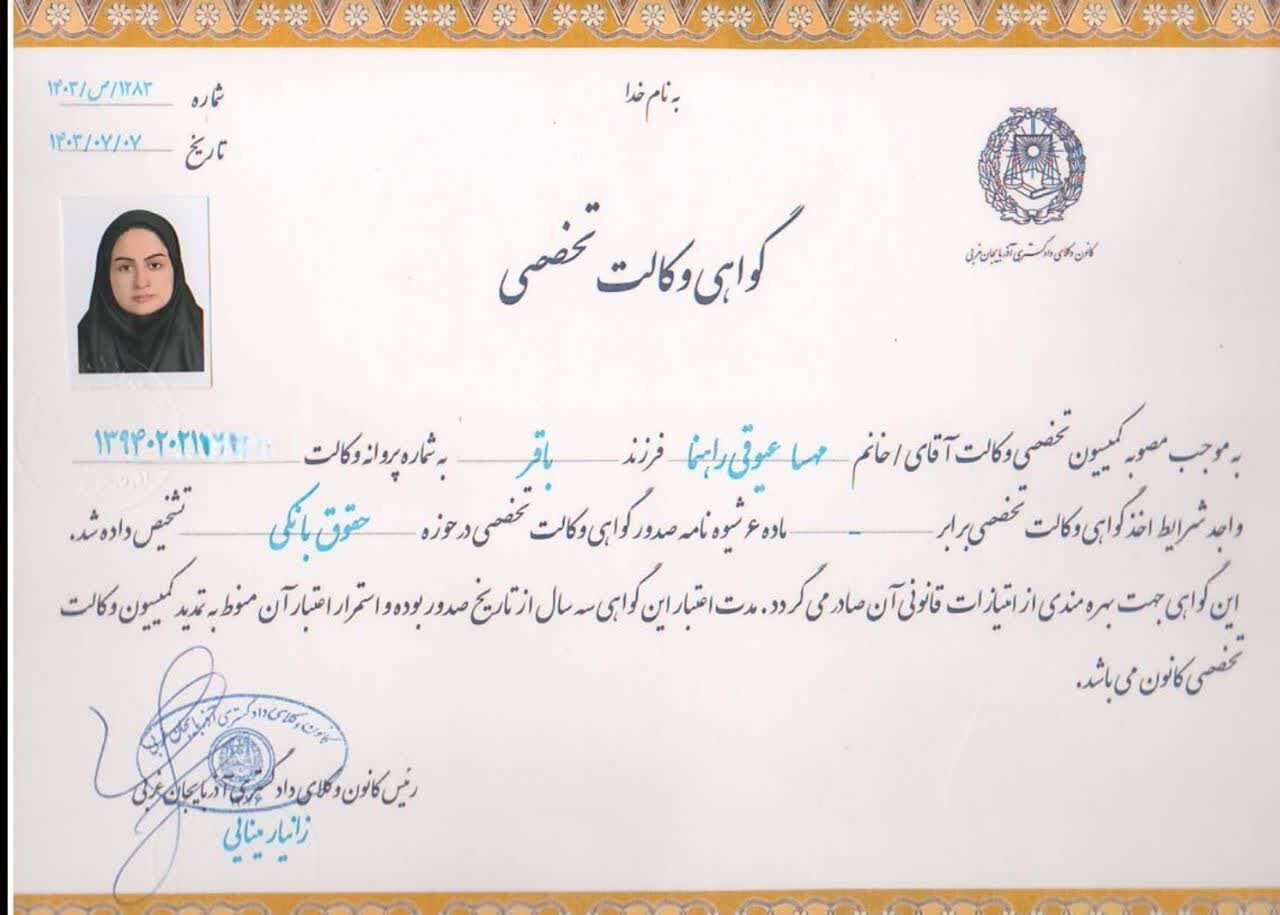 به نام خدا
شماره ۱۲۸۳/ص/۱۴۰۳
تاریخ ۱۴۰۳/۰۷/۰۷
کانون وکلای دادگستری آذربایجان غربی
گواهی وکالت تخصصی
به موجب مصوبه کمیسیون تخصصی وکالت آقای / خانم مهسا عیوقی راهنما فرزند باقر به شماره پروانه وکالت
واجد شرایط اخذ گواهی وکالت تخصصی برابر - ماده ۶ شیوه نامه صدور گواهی وکالت تخصصی در حوزه حقوق بانکی تشخیص داده شد.
این گواهی جهت بهره مندی از امتیازات قانونی آن صادر می گردد. مدت اعتبار این گواهی سه سال از تاریخ صدور بوده و استمرار اعتبار آن منوط به تمدید کمیسیون وکالت
تخصصی کانون می باشد.
کانون وکلای دادگستری آذربایجان غربی
رئیس کانون وکلای دادگستری آذربایجان غربی
زانیار مینایی